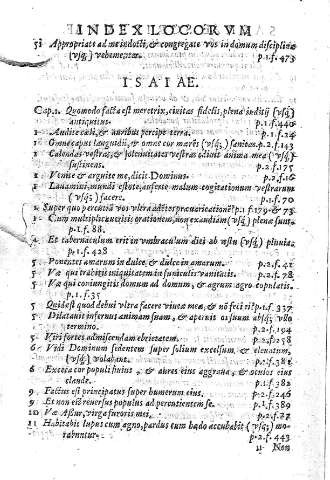 INDEX LOCORVM
51 Appropriate ad me indocti, & congregate vos in domum disciplinæ
(vsq;) vehementer. p.1.f.473
ISAIAE.
Cap.1. Quomodo facta est meretrix, civitas fidelis, plena inditij (vsq;)
antiquitus. p.1.f.440
1 Audite cæli, & auribus percipe terra. p.1.f.24
1 Omne caput languidũ, & omne cor mærẽs (vsq;) sanitas. p.2.f.143
1 Calendas vestras, & solemnitates vestras odivit anima mea (vsq;)
sustinens. p.2.f.175
1 Venite & arguite me, dicit Dominus. p.2.f.16
1 Lavamini, mundi estote, auferte malum cogitationum vestrarum
p.1.f.70
1 Super quo percutiã vos vltra addẽtes prævaricationẽ? p.1 f.79. & 73
1 Cum multiplicaveritis orationem, non exaudiam (vsq;) plenæ sunt.
p.1.f.88.
4 Et tabernaculum erit in vmbraculum diei ab æstu (vsq;) pluvia.
p.1.f.428
5 Ponentes amarum in dulce, & dulce in amarum. p.2.f.41
5 Væ qui trahitis iniquitatem in funiculis vanitatis. p.2.f.78
5 Væ qui coniungitis domum ad domum, & agrum agro copulatis.
p.1.f.35
5 Quid est quod debui vltra facere vineæ meæ, & nõ feci ei? p.1.f.337
5 Dilatavit infernus animam suam, & aperuit os suum absq; vllo
termino. p.2.f.194
5 Viri fortes ad miscendam ebrietatem. p.2.f.258
6 Vidi Dominum sedentem super solium excelsum, & elevatum,
(vsq;) volabant. p.2.f.381
6 Excæca cor populi huius, & aures eius aggrava, & oculos eius
claude. p.1.f.382
9 Factus est principatus super humerum eius. p.2.f.246
9 Et non est reversus populus ad percutientem se. p.1.f.389
10 Væ Assur, virga furoris mei. p.2.f.77
11 Habitabit lupus cum agno, pardus cum hædo accubabit (vsq;) morabuntur.
p.2.f.443
11 Non